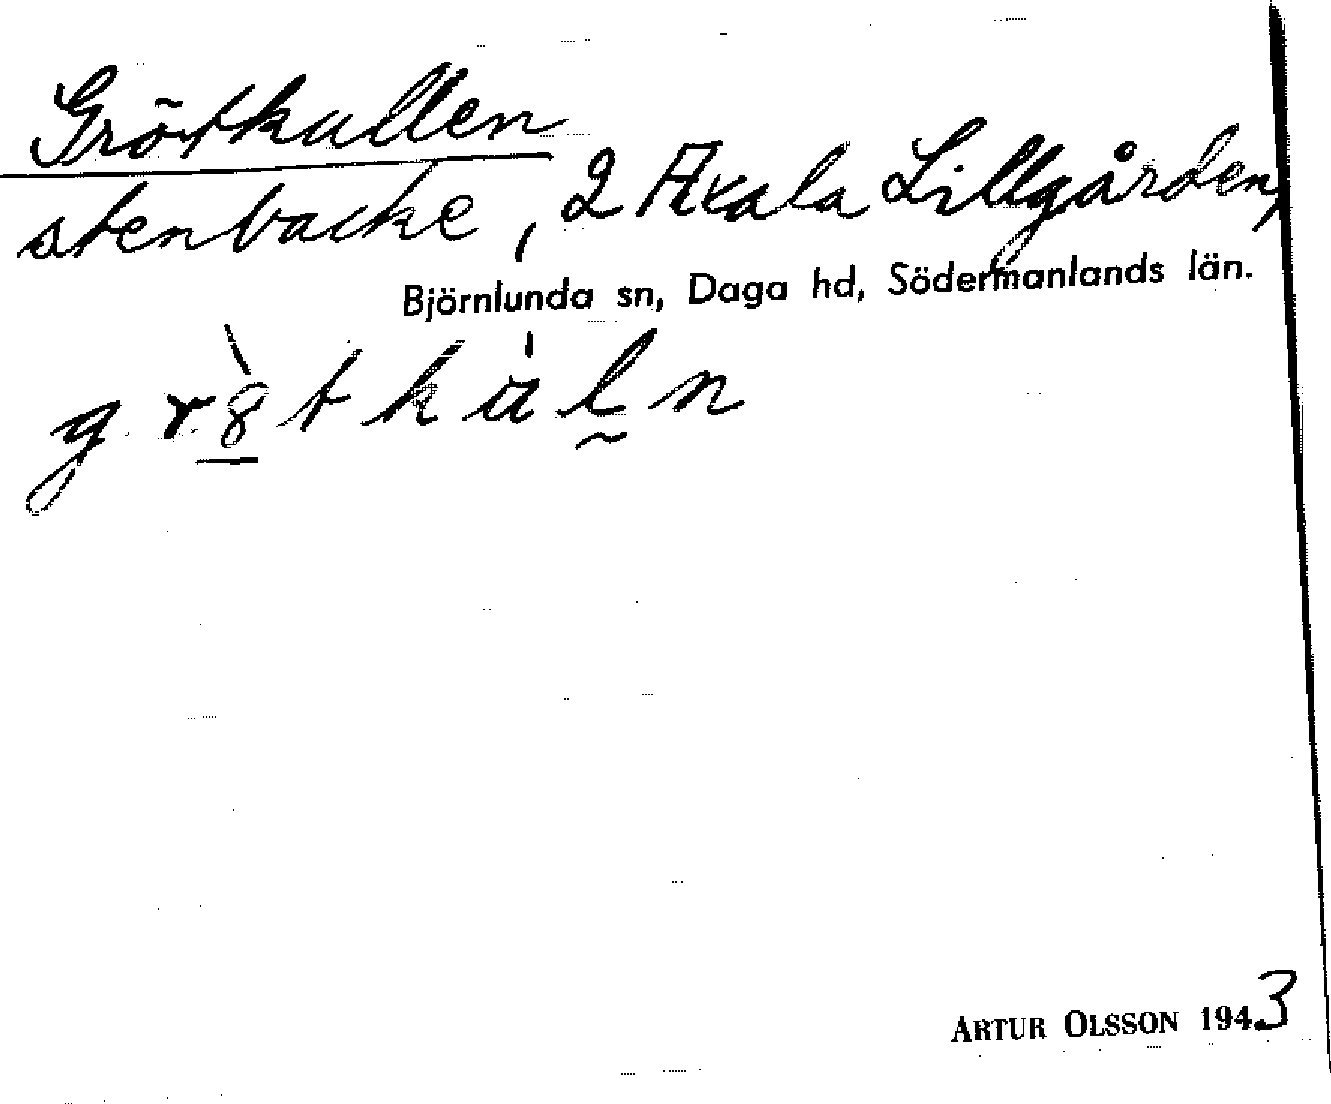 Grötkullen
stenbacke, 2 Axala Lillgården,
Björnlunda sn, Daga hd, Södermanlands län.
ARTUR OLSSON 1943